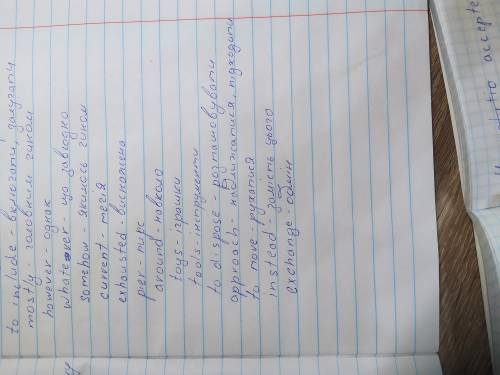 to include - включати, залучати
mostly - головним чином
however однак
whatever - що завгодно
somehow - якимось чином
current - течія
exhausted виснажена
pier - пирс
around - навколо
toys - іграшки
tools - інструменти
to dispose - розташовувати
approach - наближатися, підходити
to move - рухатися
instead - замість цього
exchange - обмін
to accept